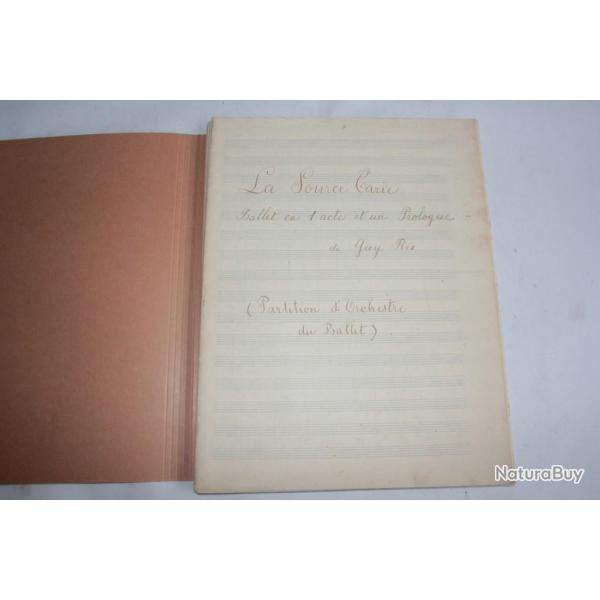 La Source Tarie
Ballet en 1 acte et un Prologue
de Guy Ris
(Partition d'Orchestre
du Ballet)
NaturaBuy